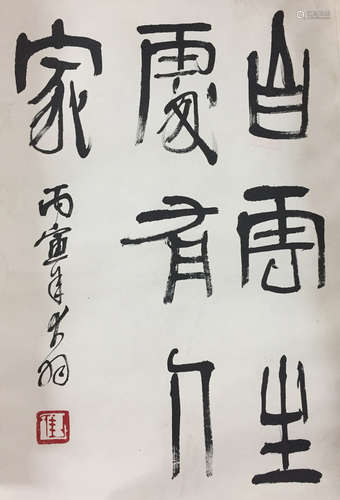 白雲生
處有人
家
丙寅年大羽